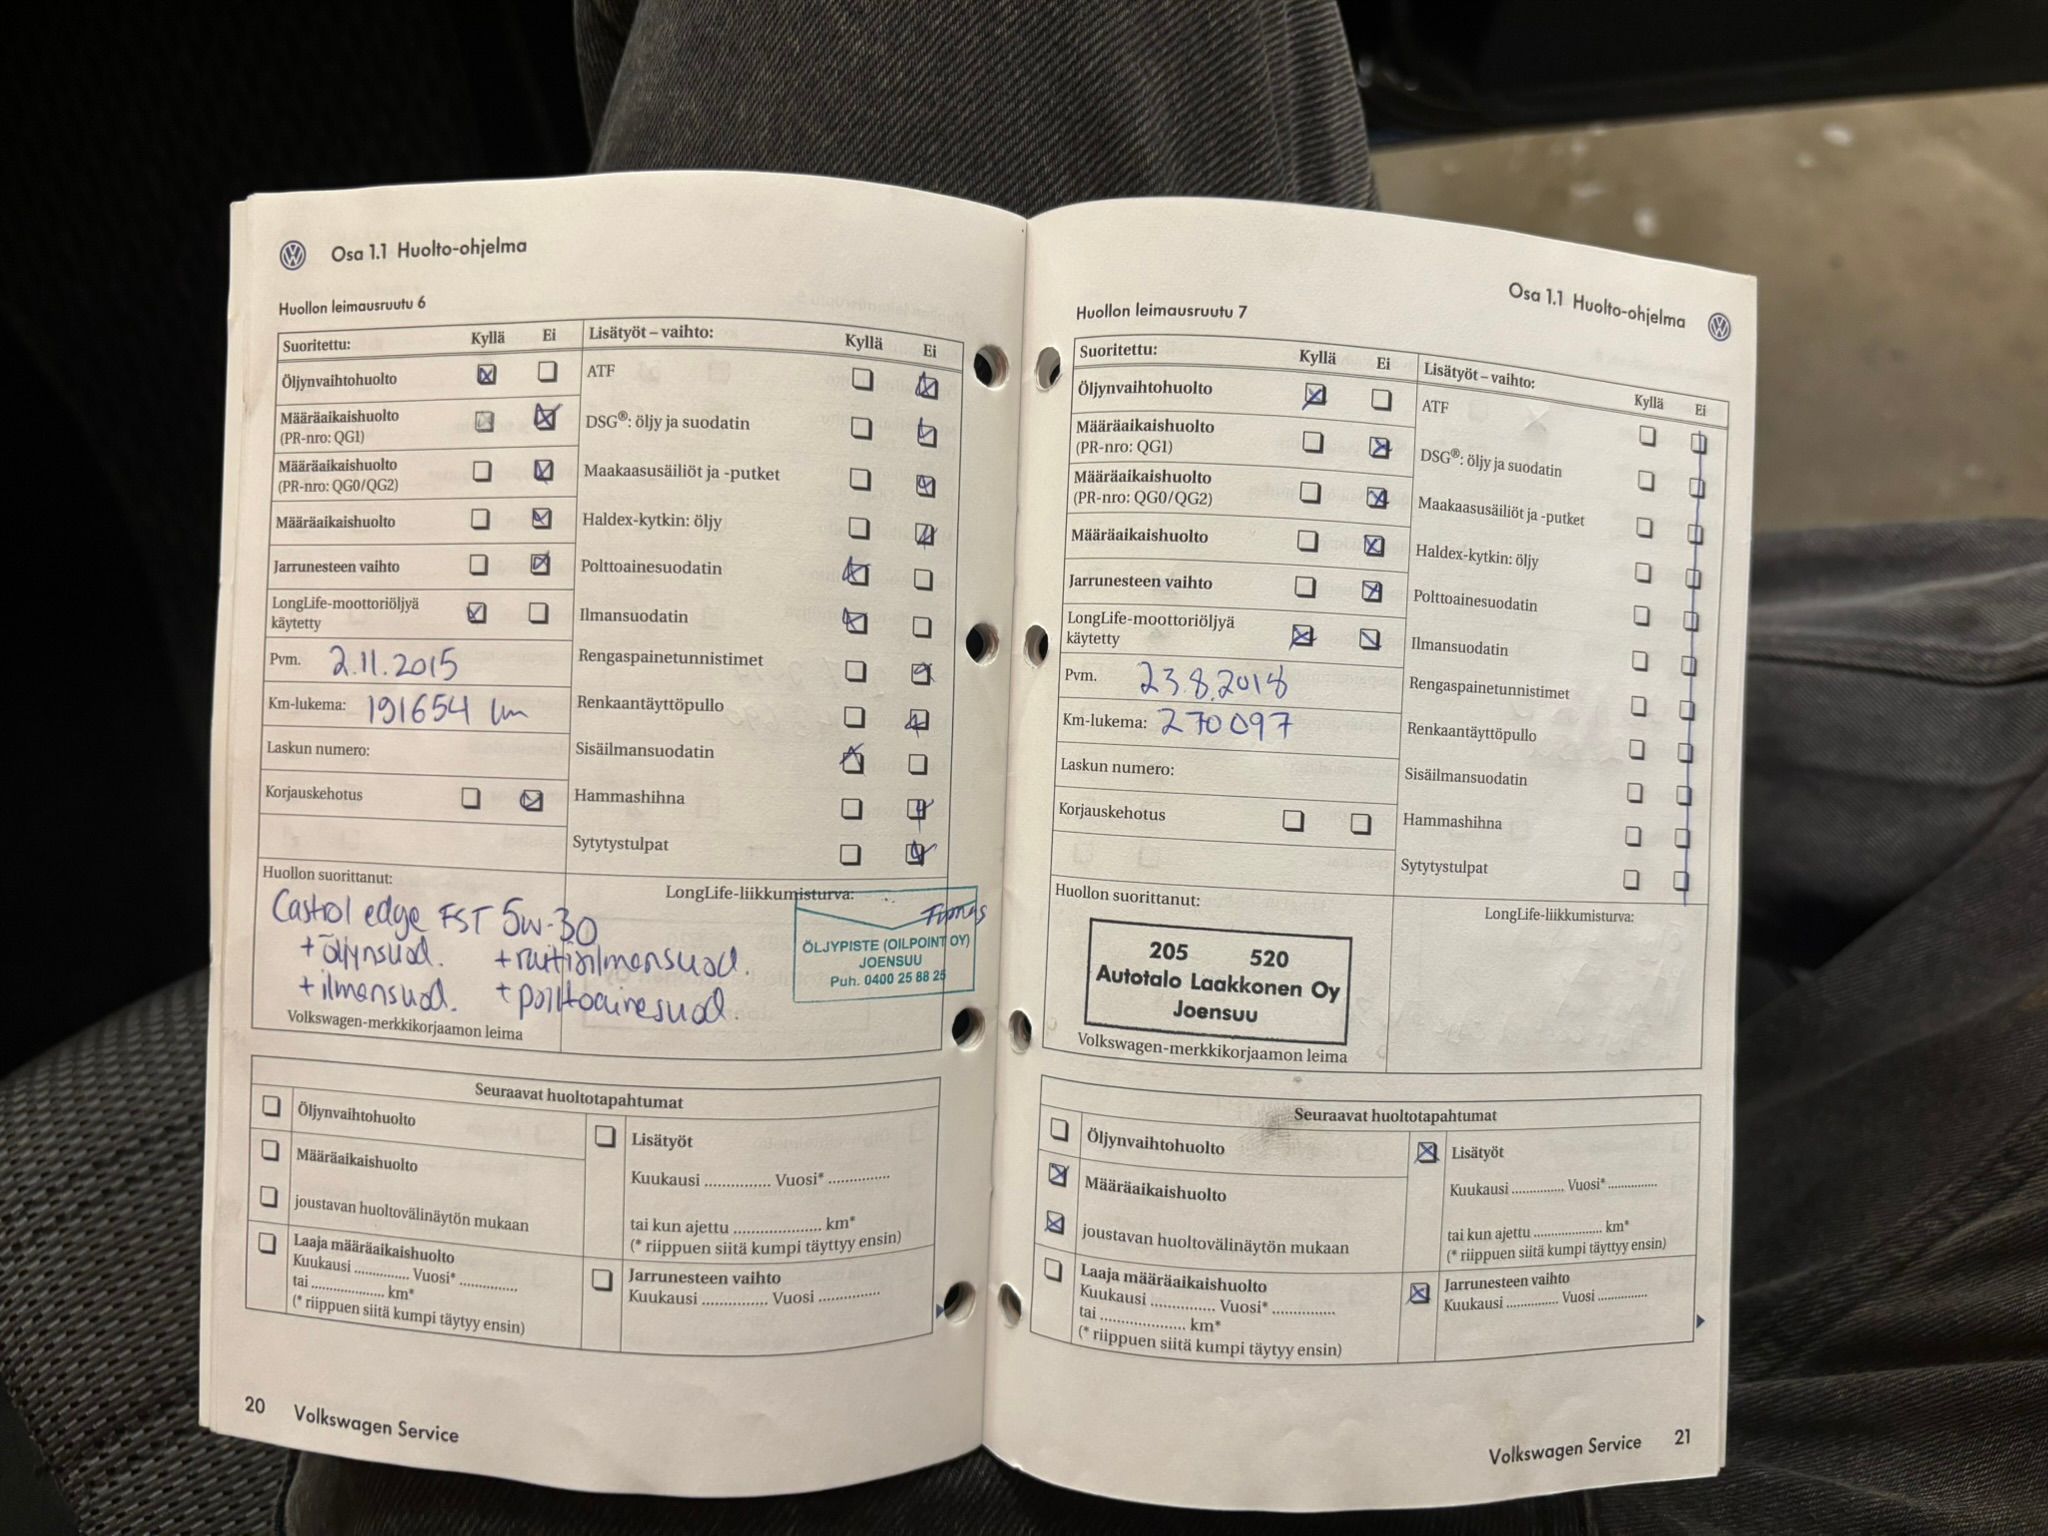 Osa 1.1 Huolto-ohjelma
Huollon leimausruutu 6
Suoritettu: Kyllä Ei
Öljynvaihtohuolto
Määräaikaishuolto
(PR-nro: QG1)
Määräaikaishuolto
(PR-nro: QG0/QG2)
Määräaikaishuolto
Jarrunesteen vaihto
LongLife-moottoriöljyä
käytetty
Pvm. 2.11.2015
Km-lukema: 191654 km
Laskun numero:
Korjauskehotus
Lisätyöt – vaihto: Kyllä Ei
ATF
DSG®: öljy ja suodatin
Maakaasusäiliöt ja -putket
Haldex-kytkin: öljy
Polttoainesuodatin
Ilmansuodatin
Rengaspainetunnistimet
Renkaantäyttöpullo
Sisäilmansuodatin
Hammashihna
Sytytystulpat
Huollon suorittanut:
Castrol edge FST 5w-30
+ öljynsuod. + raitisilmansuod.
+ ilmansuod. + polttoainesuod.
Volkswagen-merkkikorjaamon leima
LongLife-liikkumisturva:
ÖLJYPISTE (OILPOINT OY)
JOENSUU
Puh. 0400 25 88 25
Seuraavat huoltotapahtumat
Öljynvaihtohuolto
Määräaikaishuolto
joustavan huoltovälinäytön mukaan
Laaja määräaikaishuolto
Kuukausi ............. Vuosi* ..............
tai .................. km*
(* riippuen siitä kumpi täytyy ensin)
Lisätyöt
Kuukausi ............... Vuosi* ..............
tai kun ajettu .................... km*
(* riippuen siitä kumpi täyttyy ensin)
Jarrunesteen vaihto
Kuukausi ............. Vuosi ..............
20 Volkswagen Service
Osa 1.1 Huolto-ohjelma
Huollon leimausruutu 7
Suoritettu: Kyllä Ei
Öljynvaihtohuolto
Määräaikaishuolto
(PR-nro: QG1)
Määräaikaishuolto
(PR-nro: QG0/QG2)
Määräaikaishuolto
Jarrunesteen vaihto
LongLife-moottoriöljyä
käytetty
Pvm. 23.8.2018
Km-lukema: 270097
Laskun numero:
Korjauskehotus
Lisätyöt – vaihto: Kyllä Ei
ATF
DSG®: öljy ja suodatin
Maakaasusäiliöt ja -putket
Haldex-kytkin: öljy
Polttoainesuodatin
Ilmansuodatin
Rengaspainetunnistimet
Renkaantäyttöpullo
Sisäilmansuodatin
Hammashihna
Sytytystulpat
Huollon suorittanut:
205 520
Autotalo Laakkonen Oy
Joensuu
Volkswagen-merkkikorjaamon leima
LongLife-liikkumisturva:
Seuraavat huoltotapahtumat
Öljynvaihtohuolto
Määräaikaishuolto
joustavan huoltovälinäytön mukaan
Laaja määräaikaishuolto
Kuukausi ............. Vuosi* ..............
tai .................. km*
(* riippuen siitä kumpi täytyy ensin)
Lisätyöt
Kuukausi ............. Vuosi* ..............
tai kun ajettu .................... km*
(* riippuen siitä kumpi täyttyy ensin)
Jarrunesteen vaihto
Kuukausi ............. Vuosi ..............
Volkswagen Service 21